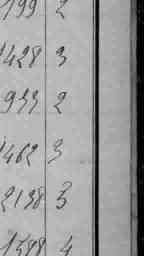 199 2
1428 3
933 2
1462 3
2138 3
1588 4